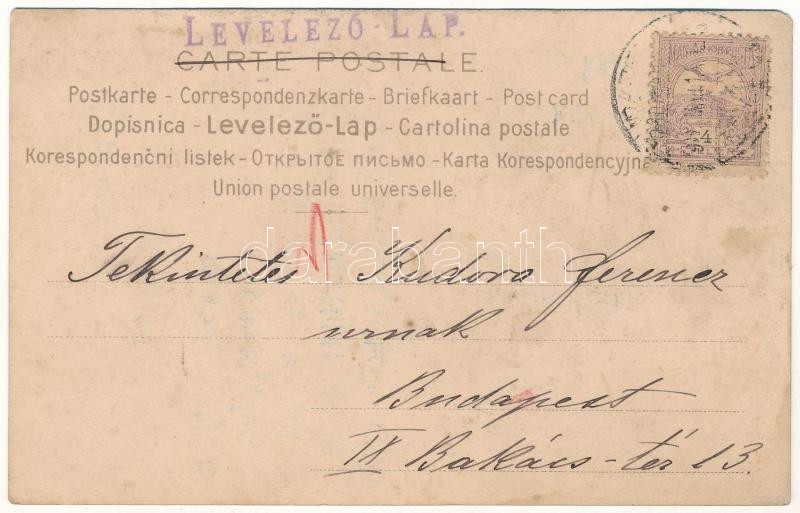 LEVELEZŐ-LAP.
CARTE POSTALE.
Postkarte - Correspondenzkarte - Briefkaart - Post card
Dopisnica - Levelező-Lap - Cartolina postale
Korespondenční listek - Открытое письмо - Karta Korespondencyjna
Union postale universelle.
MAGYAR KIR. POSTA
4
darabanth
Tekintetes Kudora Ferencz
urnak
Budapest
IX Bakács-tér 13.